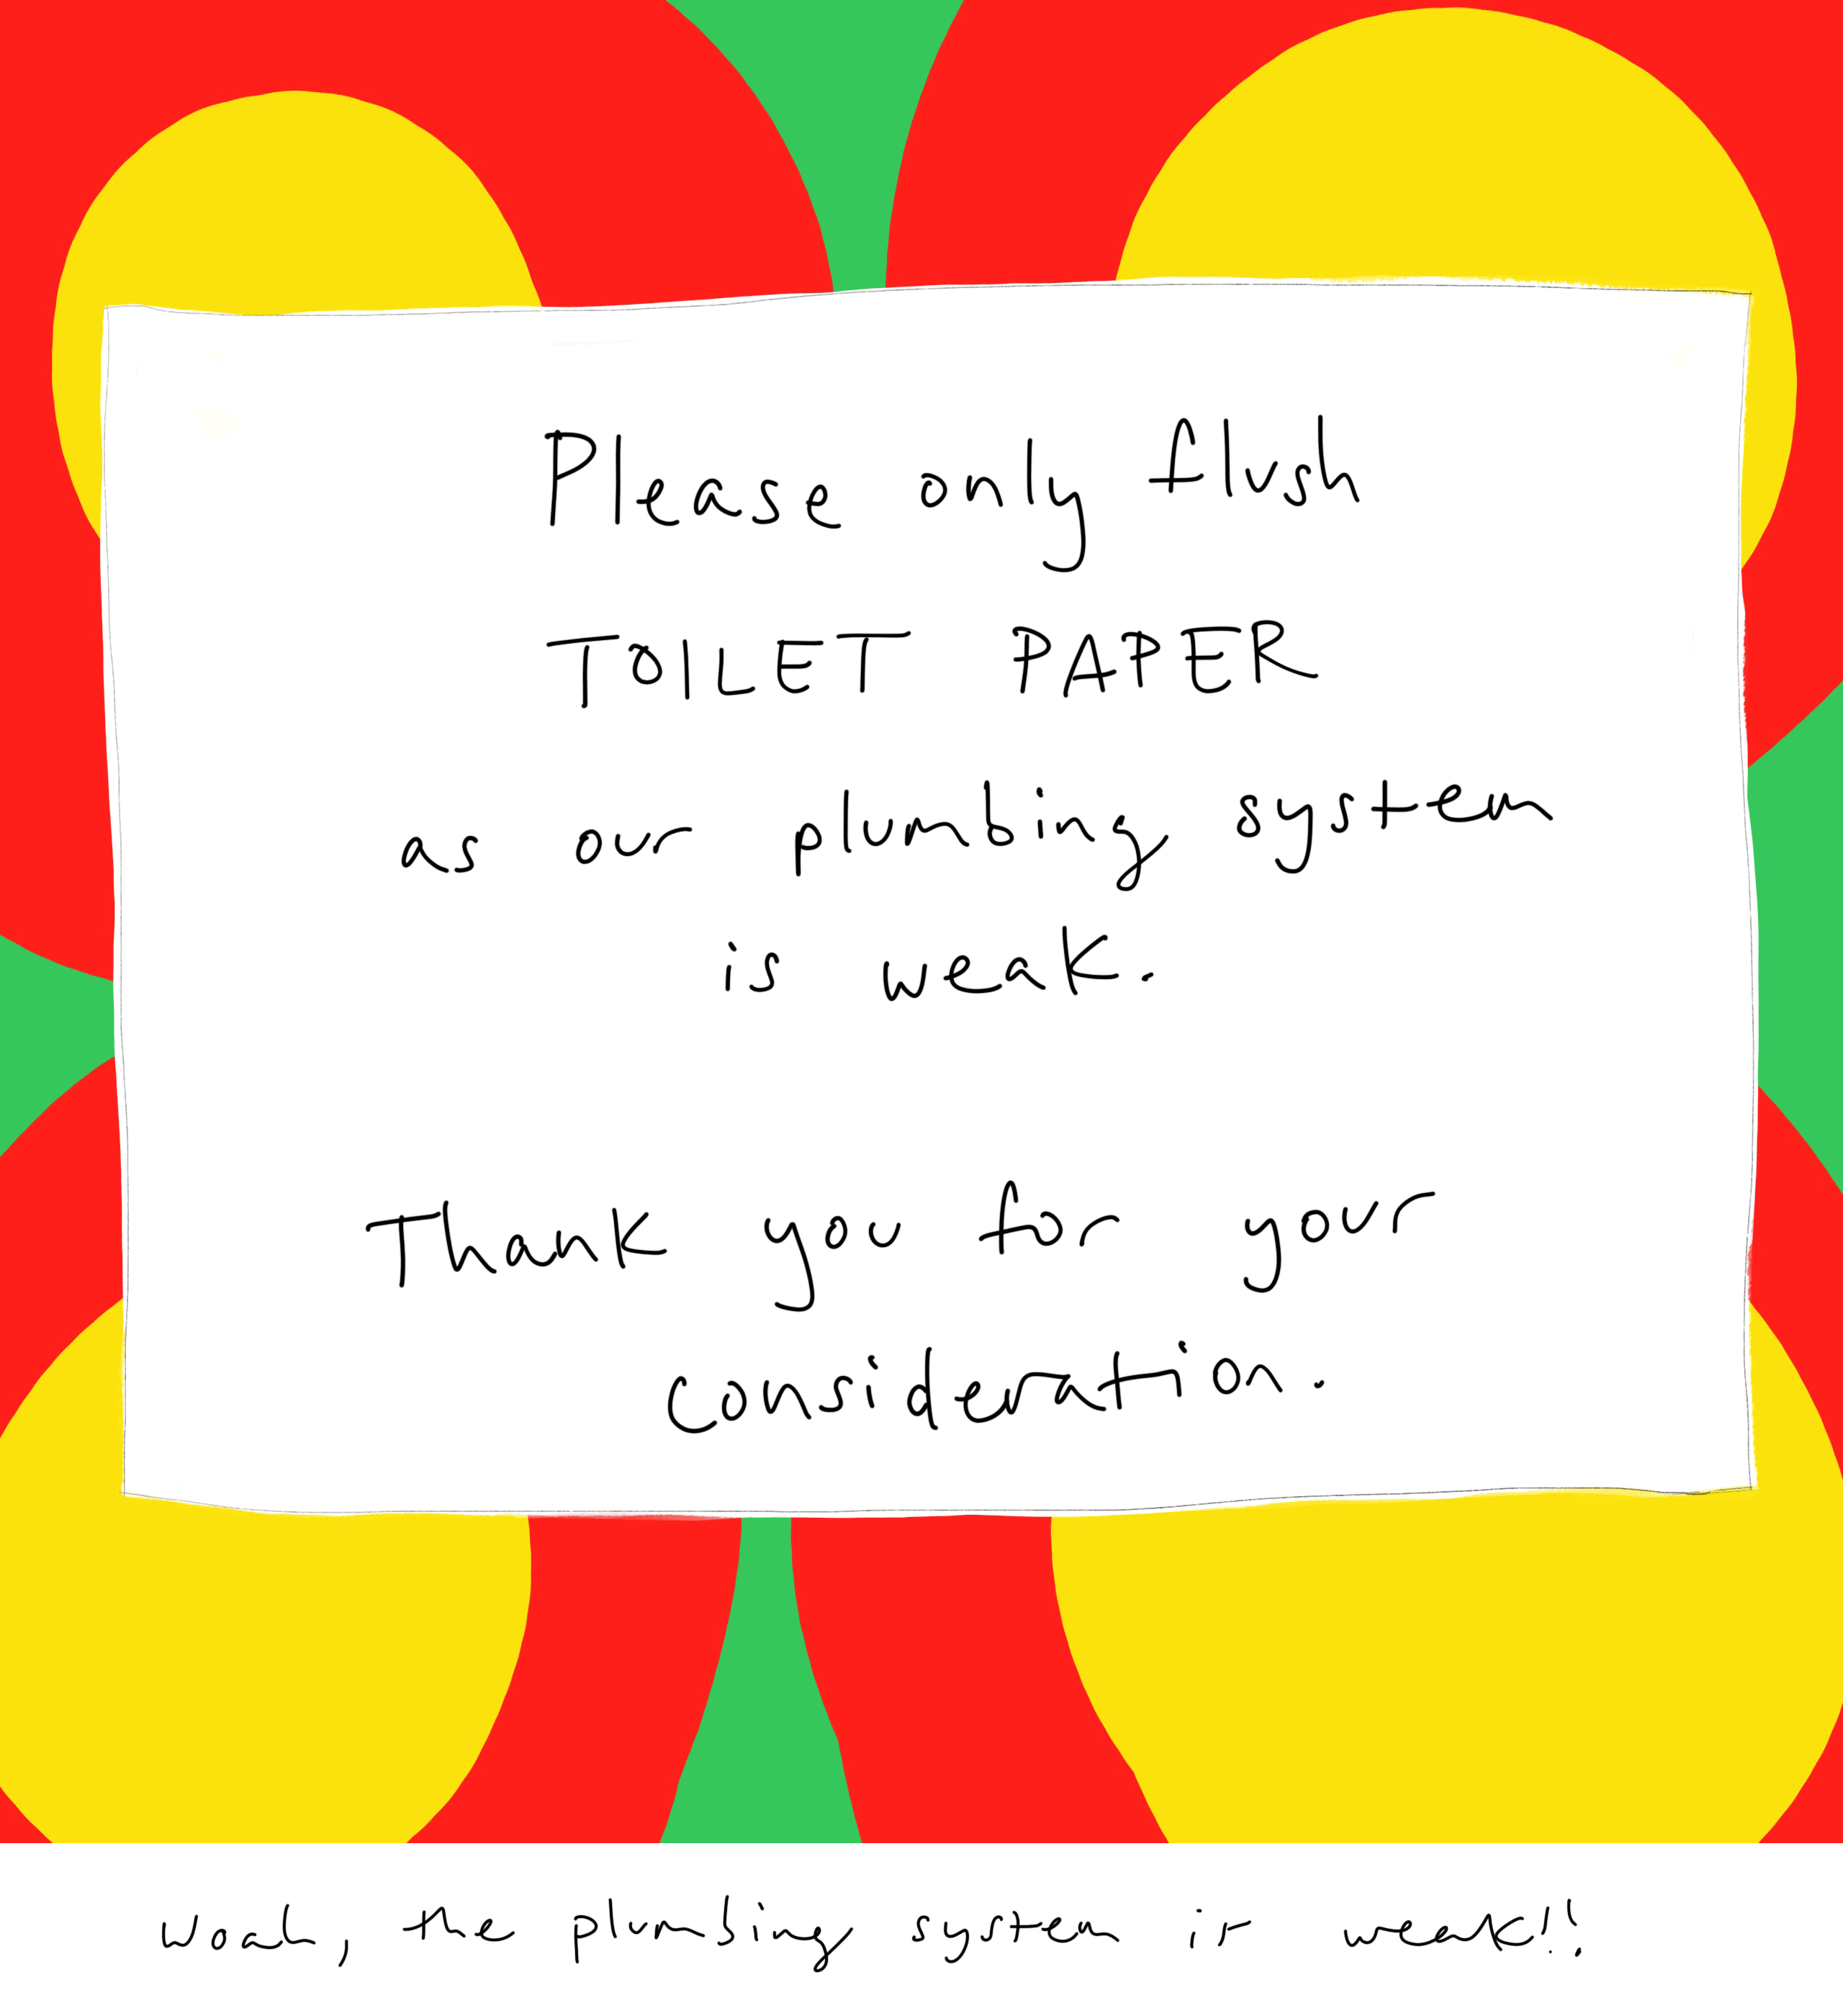 Please only flush
TOILET PAPER
as our plumbing system
is weak.
Thank you for your
consideration.
woah, the plumbing system is weak!!